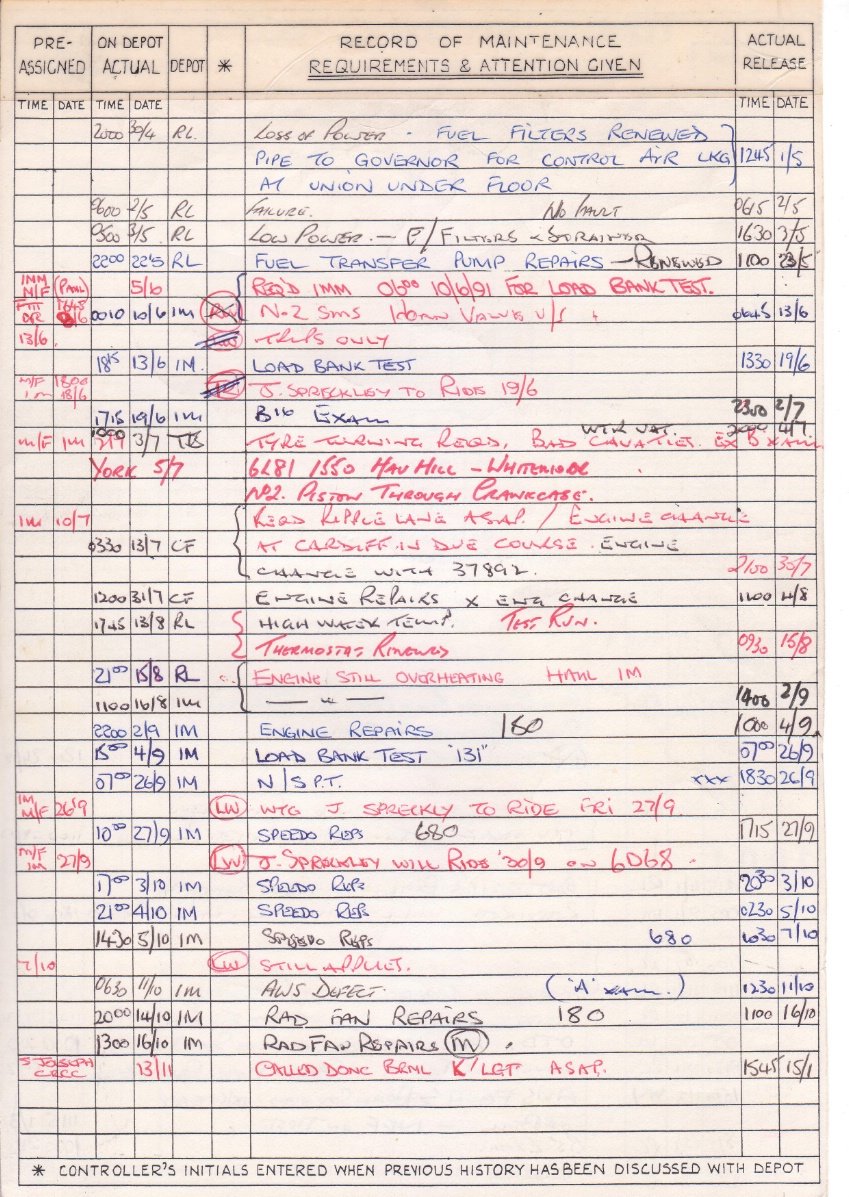 PRE-ASSIGNED ON DEPOT ACTUAL DEPOT * RECORD OF MAINTENANCE REQUIREMENTS & ATTENTION GIVEN ACTUAL RELEASE
TIME DATE TIME DATE TIME DATE
2000 30/4 RL. LOSS OF POWER - FUEL FILTERS RENEWED
PIPE TO GOVERNOR FOR CONTROL AIR LKG 1245 1/5
AT UNION UNDER FLOOR
0600 2/5 RL FAILURE. NO FAULT 0615 2/5
0500 3/5 RL LOW POWER. - F/FILTERS & STRAINER 1630 3/5
2200 22/5 RL FUEL TRANSFER PUMP REPAIRS - RENEWED 1100 23/5
IMM N/F (PAUL) 5/6 REQ'D IMM 0600 10/6/91 FOR LOAD BANK TEST.
1645 0010 10/6 IM No 2 SMS HORN VALVE U/S + 0645 13/6
13/6. TRIPS ONLY
1815 13/6 IM. LOAD BANK TEST 1330 19/6
M/F IM 1800 18/6 J. SPRECKLEY TO RIDE 19/6
1715 19/6 IM B16 EXAM 2300 2/7
M/F IM 3/7 TYRE TURNING REQD, BAD CAVATIES. EX B XAM 4/7
YORK 5/7 6L81 1550 HAV HILL - WHITEMOOR
No2. PISTON THROUGH CRANKCASE.
IM 10/7 REQD RIPPLE LANE ASAP. / ENGINE CHANGE
0330 13/7 CF AT CARDIFF IN DUE COURSE. ENGINE
CHANGE WITH 37892. 2100 30/7
1200 31/7 CF ENGINE REPAIRS X ENG CHANGE 1100 4/8
1745 13/8 RL HIGH WATER TEMP. TEST RUN.
THERMOSTAT RENEWED 0930 15/8
2100 15/8 RL ENGINE STILL OVERHEATING HAUL IM
1100 16/8 IM — " — 1400 2/9
2200 2/9 IM ENGINE REPAIRS 180 1000 4/9
1500 4/9 IM LOAD BANK TEST "131" 0700 26/9
0700 26/9 IM N/S P.T. xxx 1830 26/9
IM M/F 26/9 LW WTG J SPRECKLY TO RIDE FRI 27/9
1000 27/9 IM SPEEDO REPS 680 1715 27/9
M/F IM 27/9 LW J. SPRECKLEY WILL RIDE 30/9 ON 6D68.
1700 3/10 IM SPEEDO REPS 2030 3/10
2100 4/10 IM SPEEDO REPS 0230 5/10
1430 5/10 IM SPEEDO REPS 680 1030 7/10
7/10 LW STILL APPLIES.
0630 11/10 IM AWS DEFECT. ("A" XAM.) 1230 11/10
2000 14/10 IM RAD FAN REPAIRS 180 1100 16/10
1300 16/10 IM RAD FAN REPAIRS M.
13/11 CALLED DONC BRML K/LGT ASAP. 1545 15/1
* CONTROLLER'S INITIALS ENTERED WHEN PREVIOUS HISTORY HAS BEEN DISCUSSED WITH DEPOT